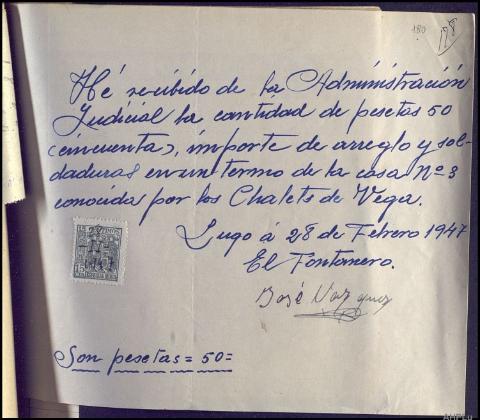 180
Hé recibido de la Administración
Judicial la cantidad de pesetas 50
(cincuenta), importe de arreglo y sol-
daduras en un termo de la casa Nº 3
conocida por los Chalets de Vega.
Lugo á 28 de Febrero 1947
El Fontanero.
José Vazquez
Son pesetas = 50 =